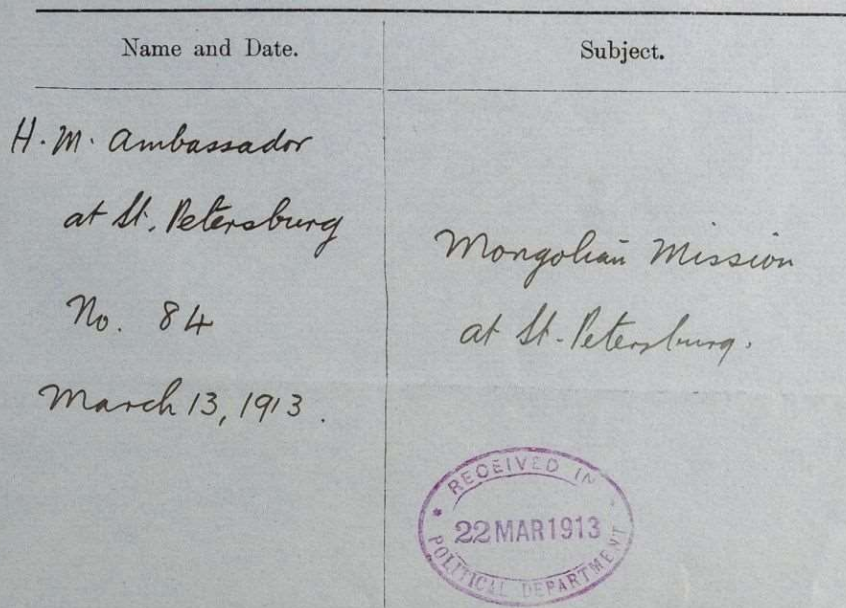 Name and Date.
Subject.
H. M. Ambassador
at St. Petersburg
No. 84
March 13, 1913.
Mongolian Mission
at St. Petersburg.
RECEIVED IN
22 MAR 1913
POLITICAL DEPARTMENT